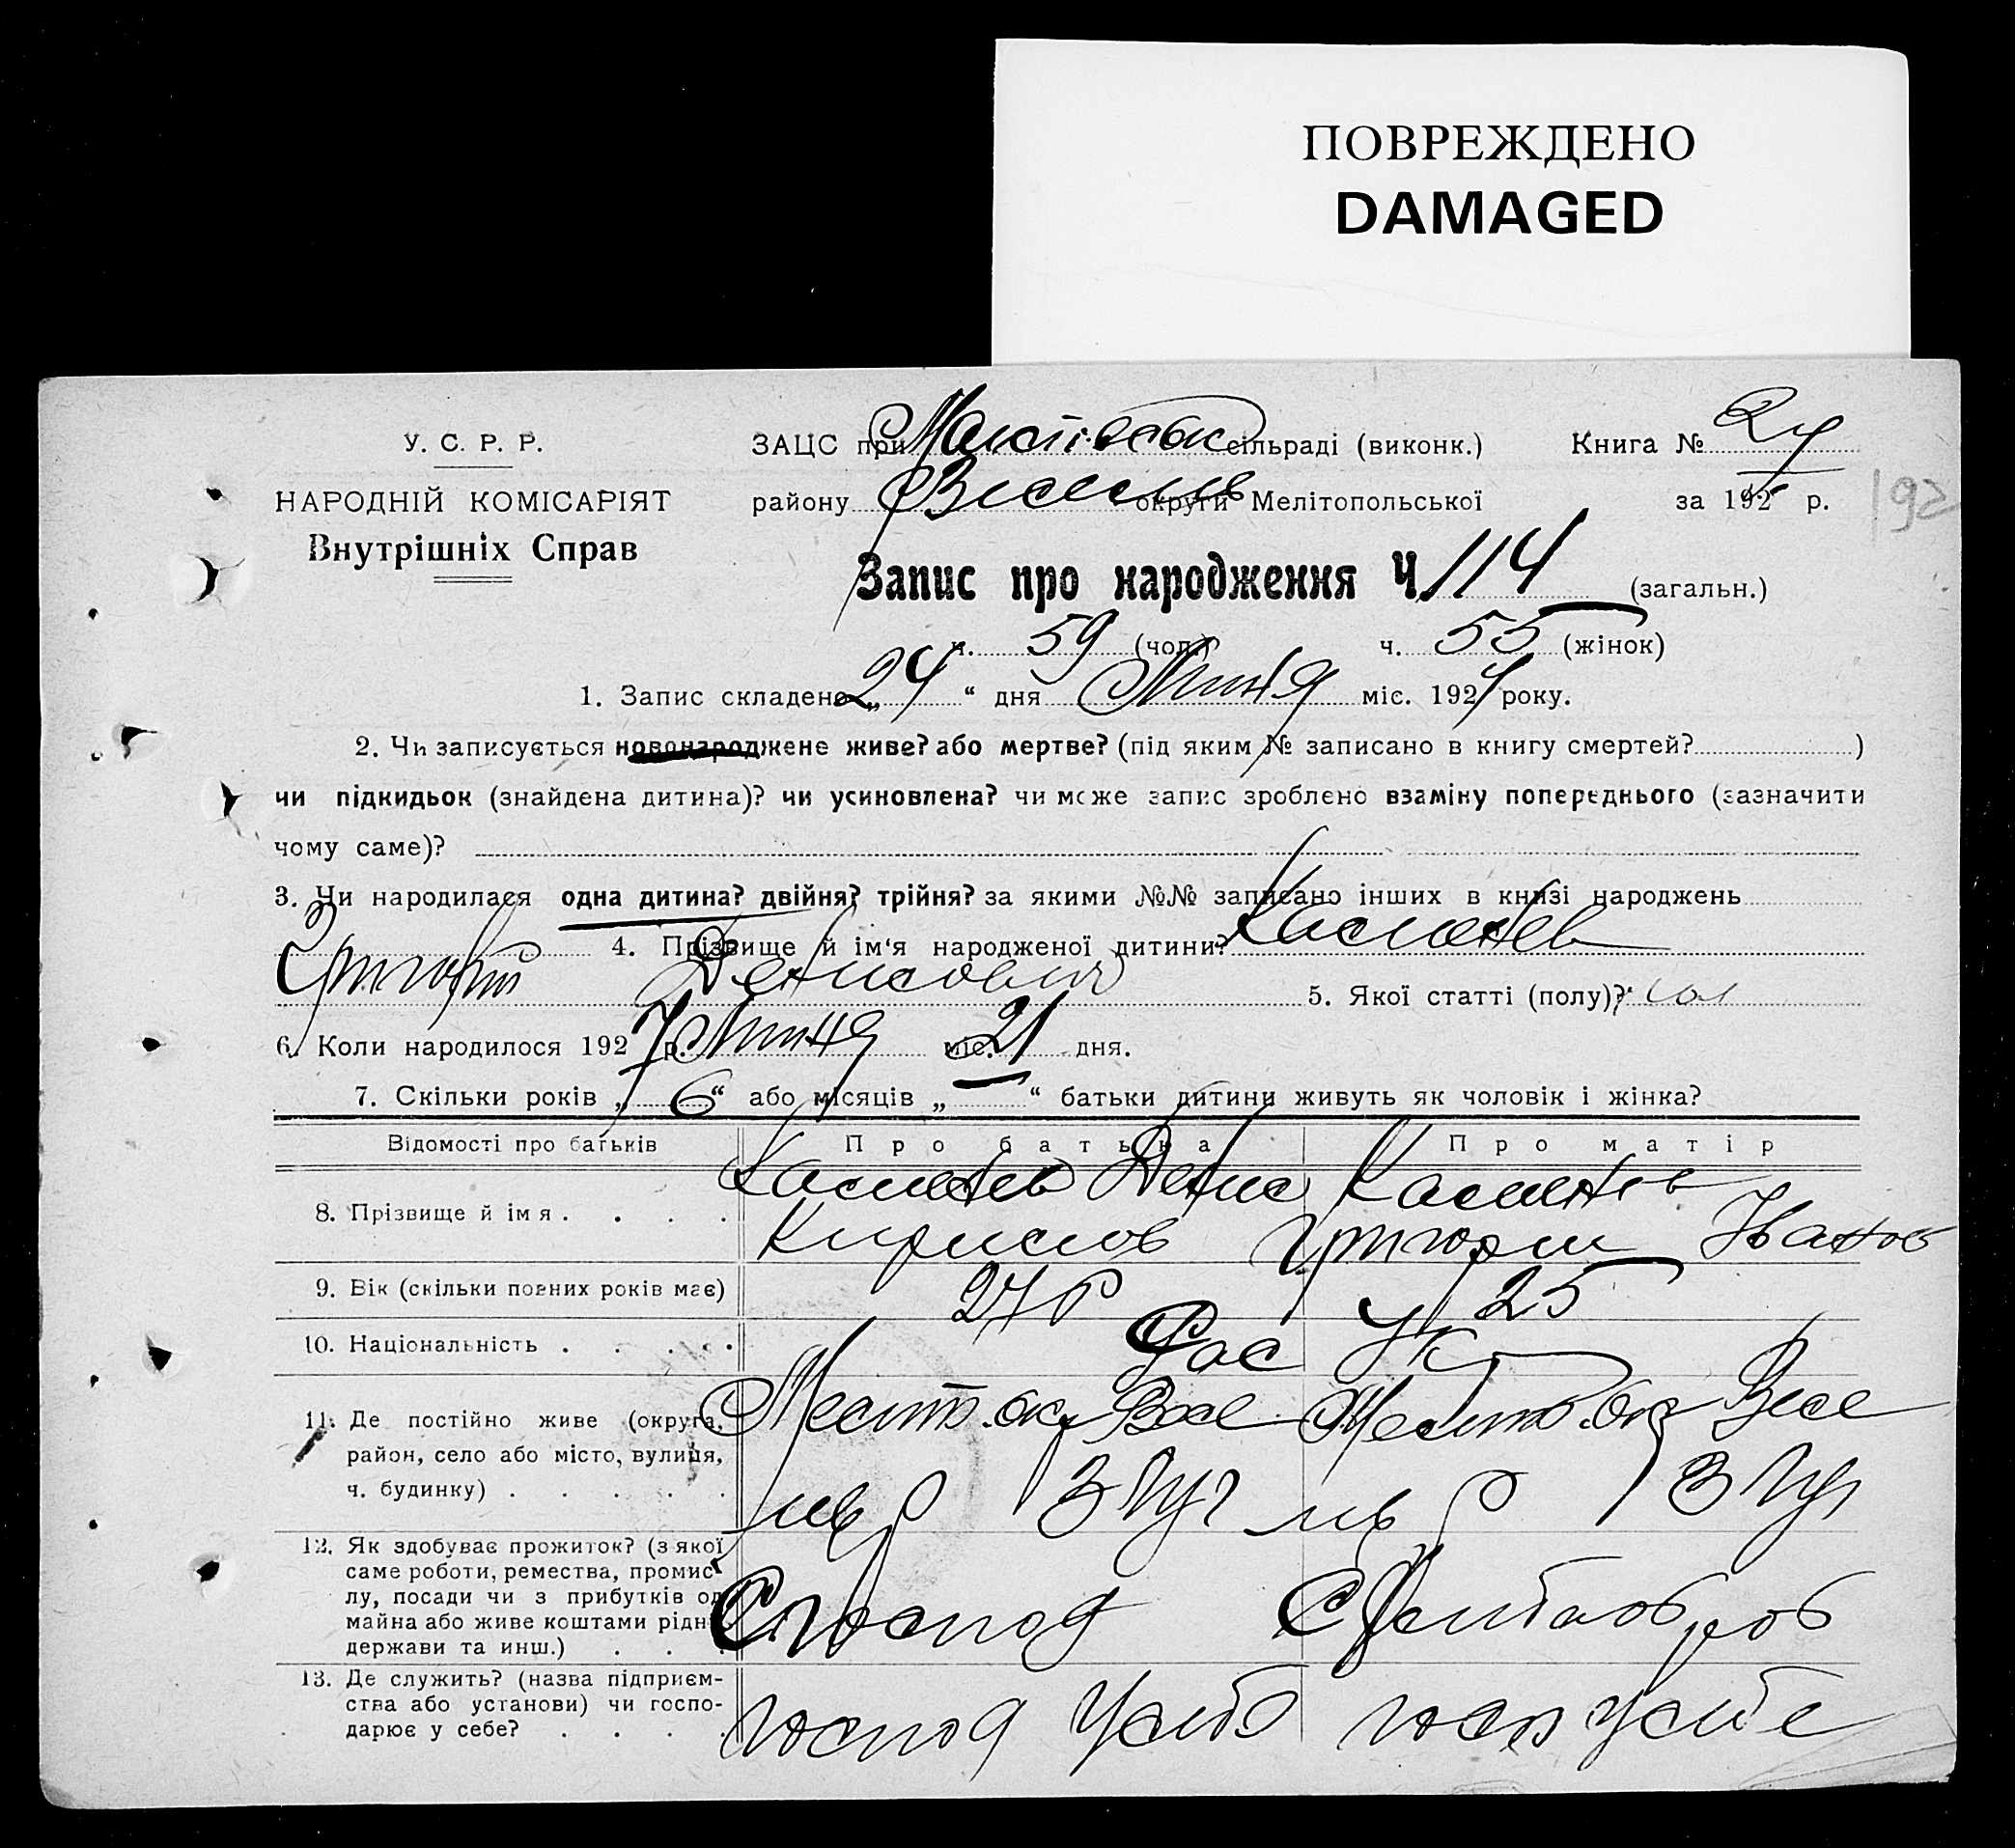 ПОВРЕЖДЕНО
DAMAGED
У. С. Р. Р.
НАРОДНІЙ КОМІСАРІЯТ
Внутрішніх Справ
ЗАЦС при сільраді (виконк.) Книга №
району Веселів округи Мелітопольської за 192 р.
192
Запис про народження Ч. 114 (загальн.)
ч. 59 (чол.) ч. 55 (жінок)
1. Запис складено „24“ дня Липня міс. 1927 року.
2. Чи записується новонароджене живе? або мертве? (під яким № записано в книгу смертей? )
чи підкидьок (знайдена дитина)? чи усиновлена? чи може запис зроблено взаміну попереднього (зазначити
чому саме)?
3. Чи народилася одна дитина? двійня? трійня? за якими №№ записано інших в книзі народжень
4. Прізвище й ім‘я народженої дитини?
Григорій Денисович 5. Якої статті (полу)? чол
6. Коли народилося 1927 р. Липня міс. 21 дня.
7. Скільки років „6“ або місяців „—“ батьки дитини живуть як чоловік і жінка?
Відомості про батьків Про батька Про матір
8. Прізвище й імя . . . . Денис
Кирилов Іванов
9. Вік (скільки повних років має) 27 р 25
10. Національність . . . . . Рос Ук
11. Де постійно живе (округа, Меліт. ок. Весе Меліт. ок Весе
район, село або місто, вулиця,
ч. будинку) . . . . . лів р лів р
12. Як здобуває прожиток? (з якої
саме роботи, ремества, промис-
лу, посади чи з прибутків од
майна або живе коштами рідні
держави та инш.) . . .
13. Де служить? (назва підприєм-
ства або установи) чи госпо-
дарює у себе? . . . . господ